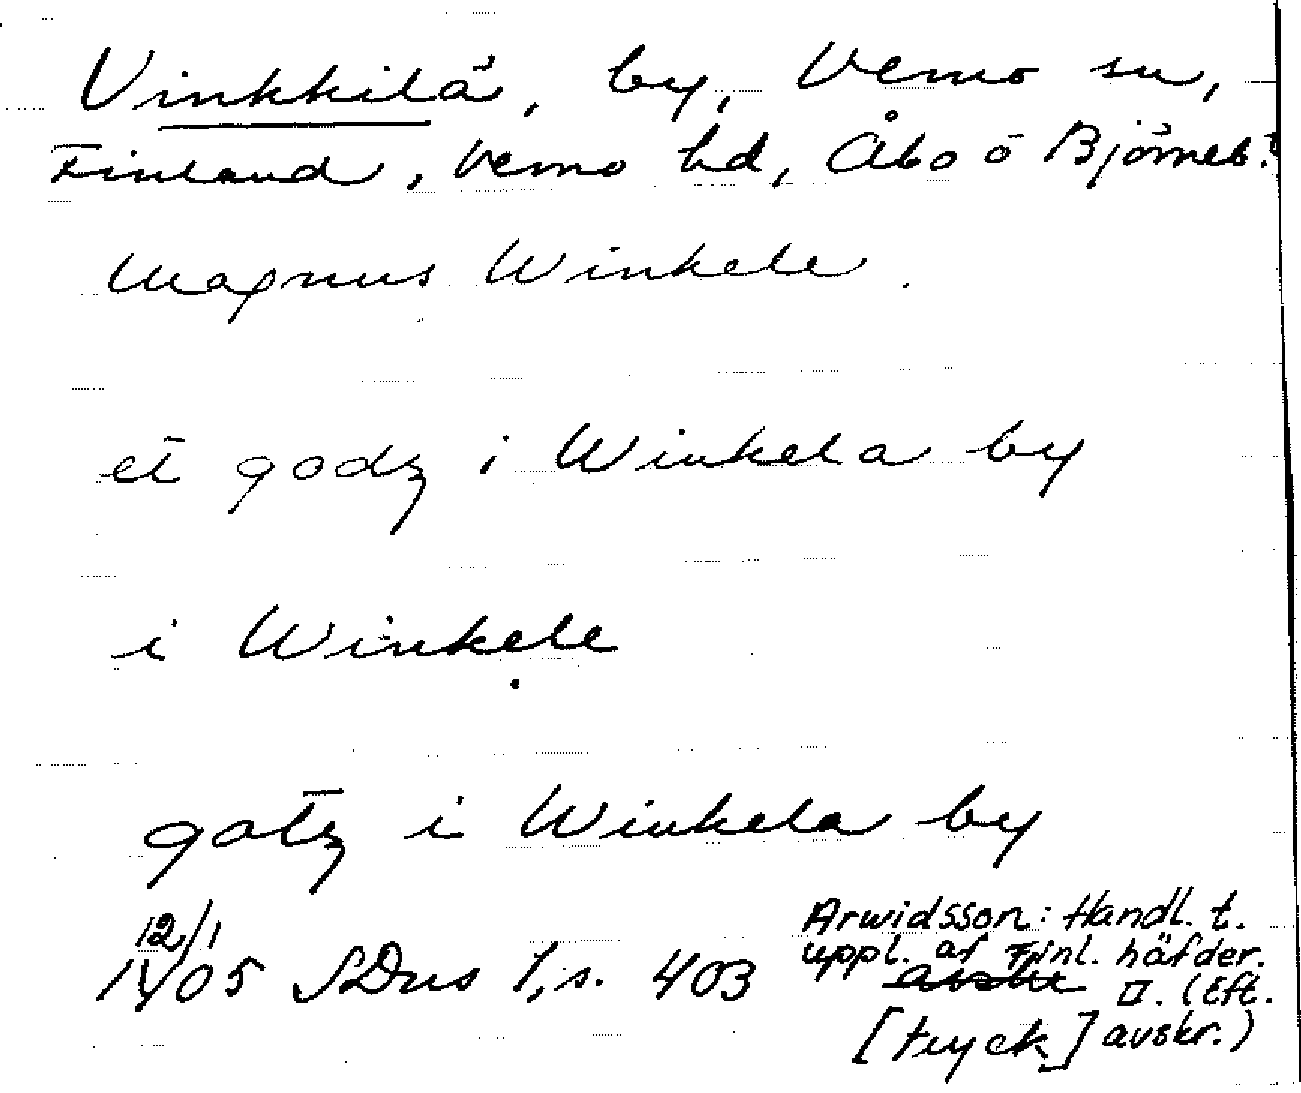 Vinkkilä, by, Vemo sn,
Finland, Vemo hd, Åbo o Björneb.
Magnus Winkele.
et godz i Winkela by
i Winkele
gotz i Winkela by
12/1
1405 SDns 1, s. 403
Arwidsson: Handl. t.
uppl. af Finl. häfder.
II. (Eft.
[tryck] avskr.)